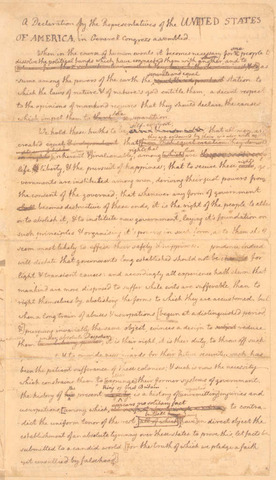 A Declaration by the Representatives of the UNITED STATES
OF AMERICA, in General Congress assembled.
When in the course of human events it becomes necessary for one people to
dissolve the political bands which have connected them with another, and to
sume among the powers of the earth the station to
which the laws of nature & of nature's god entitle them, a decent respect
to the opinions of mankind requires that they should declare the causes
which impel them to the
We hold these truths to be that all men are
created equal
life & liberty, & the pursuit of happiness; that to secure these
vernments are instituted among men, deriving their just powers from
the consent of the governed; that whenever any form of government
becomes destructive of these ends, it is the right of the people to alter
or to abolish it, & to institute new government, laying it's foundation on
such principles & organising it's powers in such form, as to them shall
seem most likely to effect their safety & happiness. prudence indeed
will dictate that governments long established should not be changed for
light & transient causes: and accordingly all experience hath shewn that
mankind are more disposed to suffer while evils are sufferable, than to
right themselves by abolishing the forms to which they are accustomed. but
when a long train of abuses & usurpations, begun at a distinguished period,
& pursuing invariably the same object, evinces a design to reduce
them it is their right, it is their duty, to throw off such
& to provide new guards for their future security. such has
been the patient sufferance of these colonies; & such is now the necessity
which constrains them to their former systems of government.
the history of is a history of injuries and
usurpations, among which, to contra-
dict the uniform tenor of the rest, in direct object the
establishment of an absolute tyranny over these states. to prove this, let facts be
submitted to a candid world, for the truth of which we pledge a faith
yet unsullied by falsehood